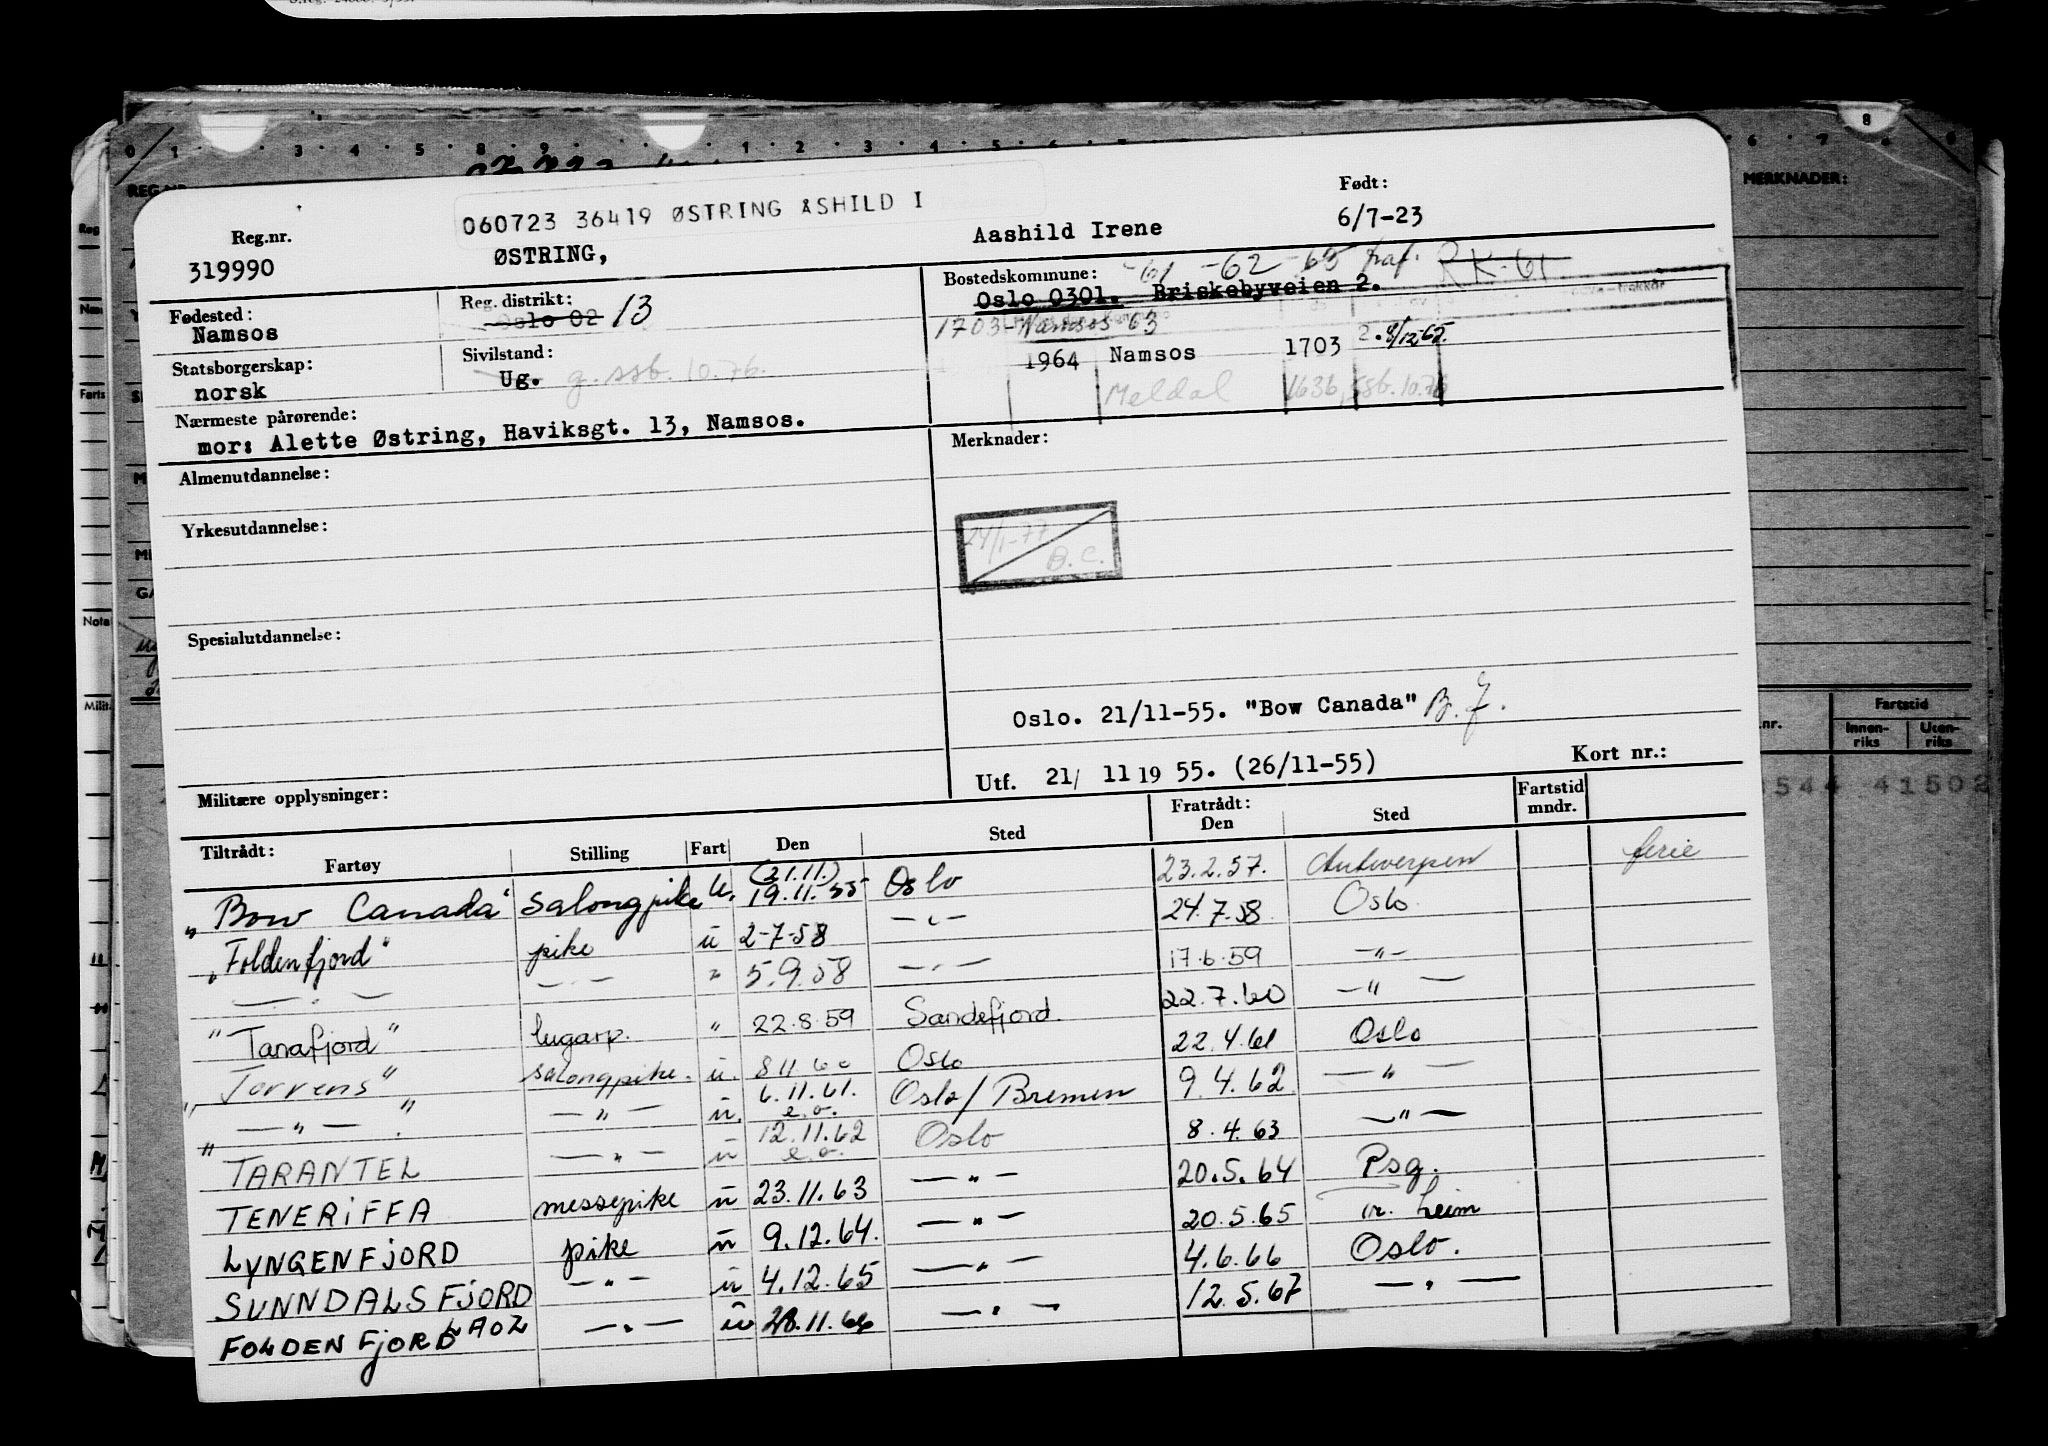 060723 36419 ØSTRING ÅSHILD I
Reg.nr. 319990
ØSTRING,
Aashild Irene
Født:
6/7-23
Fødested:
Namsos
Reg. distrikt:
Oslo 02 13
Bostedskommune: -61 -62 -65 RK-61
Oslo 0301. Briskebyveien 2.
1703 Namsos 63
Statsborgerskap:
norsk
Sivilstand:
Ug. g. ssb. 10.76.
1964 Namsos 1703 2.8/12 65.
Meldal 1636, ssb. 10.76
Nærmeste pårørende:
mor: Alette Østring, Haviksgt. 13, Namsos.
Almenutdannelse:
Merknader:
Yrkesutdannelse:
24/1-77
B.C.
Spesialutdannelse:
Oslo. 21/11-55. "Bow Canada"
Utf. 21/ 11 19 55. (26/11-55)
Kort nr.:
Militære opplysninger:
Tiltrådt:
Fartøy Stilling Fart Den Sted Fratrådt: Den Sted Fartstid mndr.
"Bow Canada" salongpike u. (21.11.) 19.11.55 Oslo 23.2.57. Antwerpen ferie
"Foldenfjord" pike u 2-7-58 — " — 24.7.58 Oslo
— " — — " — " 5.9.58 — " — 17.6.59 — " —
"Tanafjord" lugarp. " 22.8.59 Sandefjord. 22.7.60 — " —
"Torrens" salongpike. u. 8 11 60 Oslo 22.4.61 Oslo
" — " — " — " — u. 6.11.61. e.o. Oslo/Bremen 9.4.62 — " —
TARANTEL — " — u 12.11.62 e.o. Oslo 8.4.63 — " —
TENERIFFA messepike u 23.11.63 — " — 20.5.64 Psg.
LYNGENFJORD pike u 9.12.64. — " — 20.5.65 Tr. heim
SUNNDALSFJORD — " — u 4.12.65 — " — 4.6.66 Oslo.
FOLDENFJORD LAOZ — " — u 28.11.66 — " — 12.5.67 — " —
MERKNADER:
Fartstid
Innen-riks Uten-riks
41502